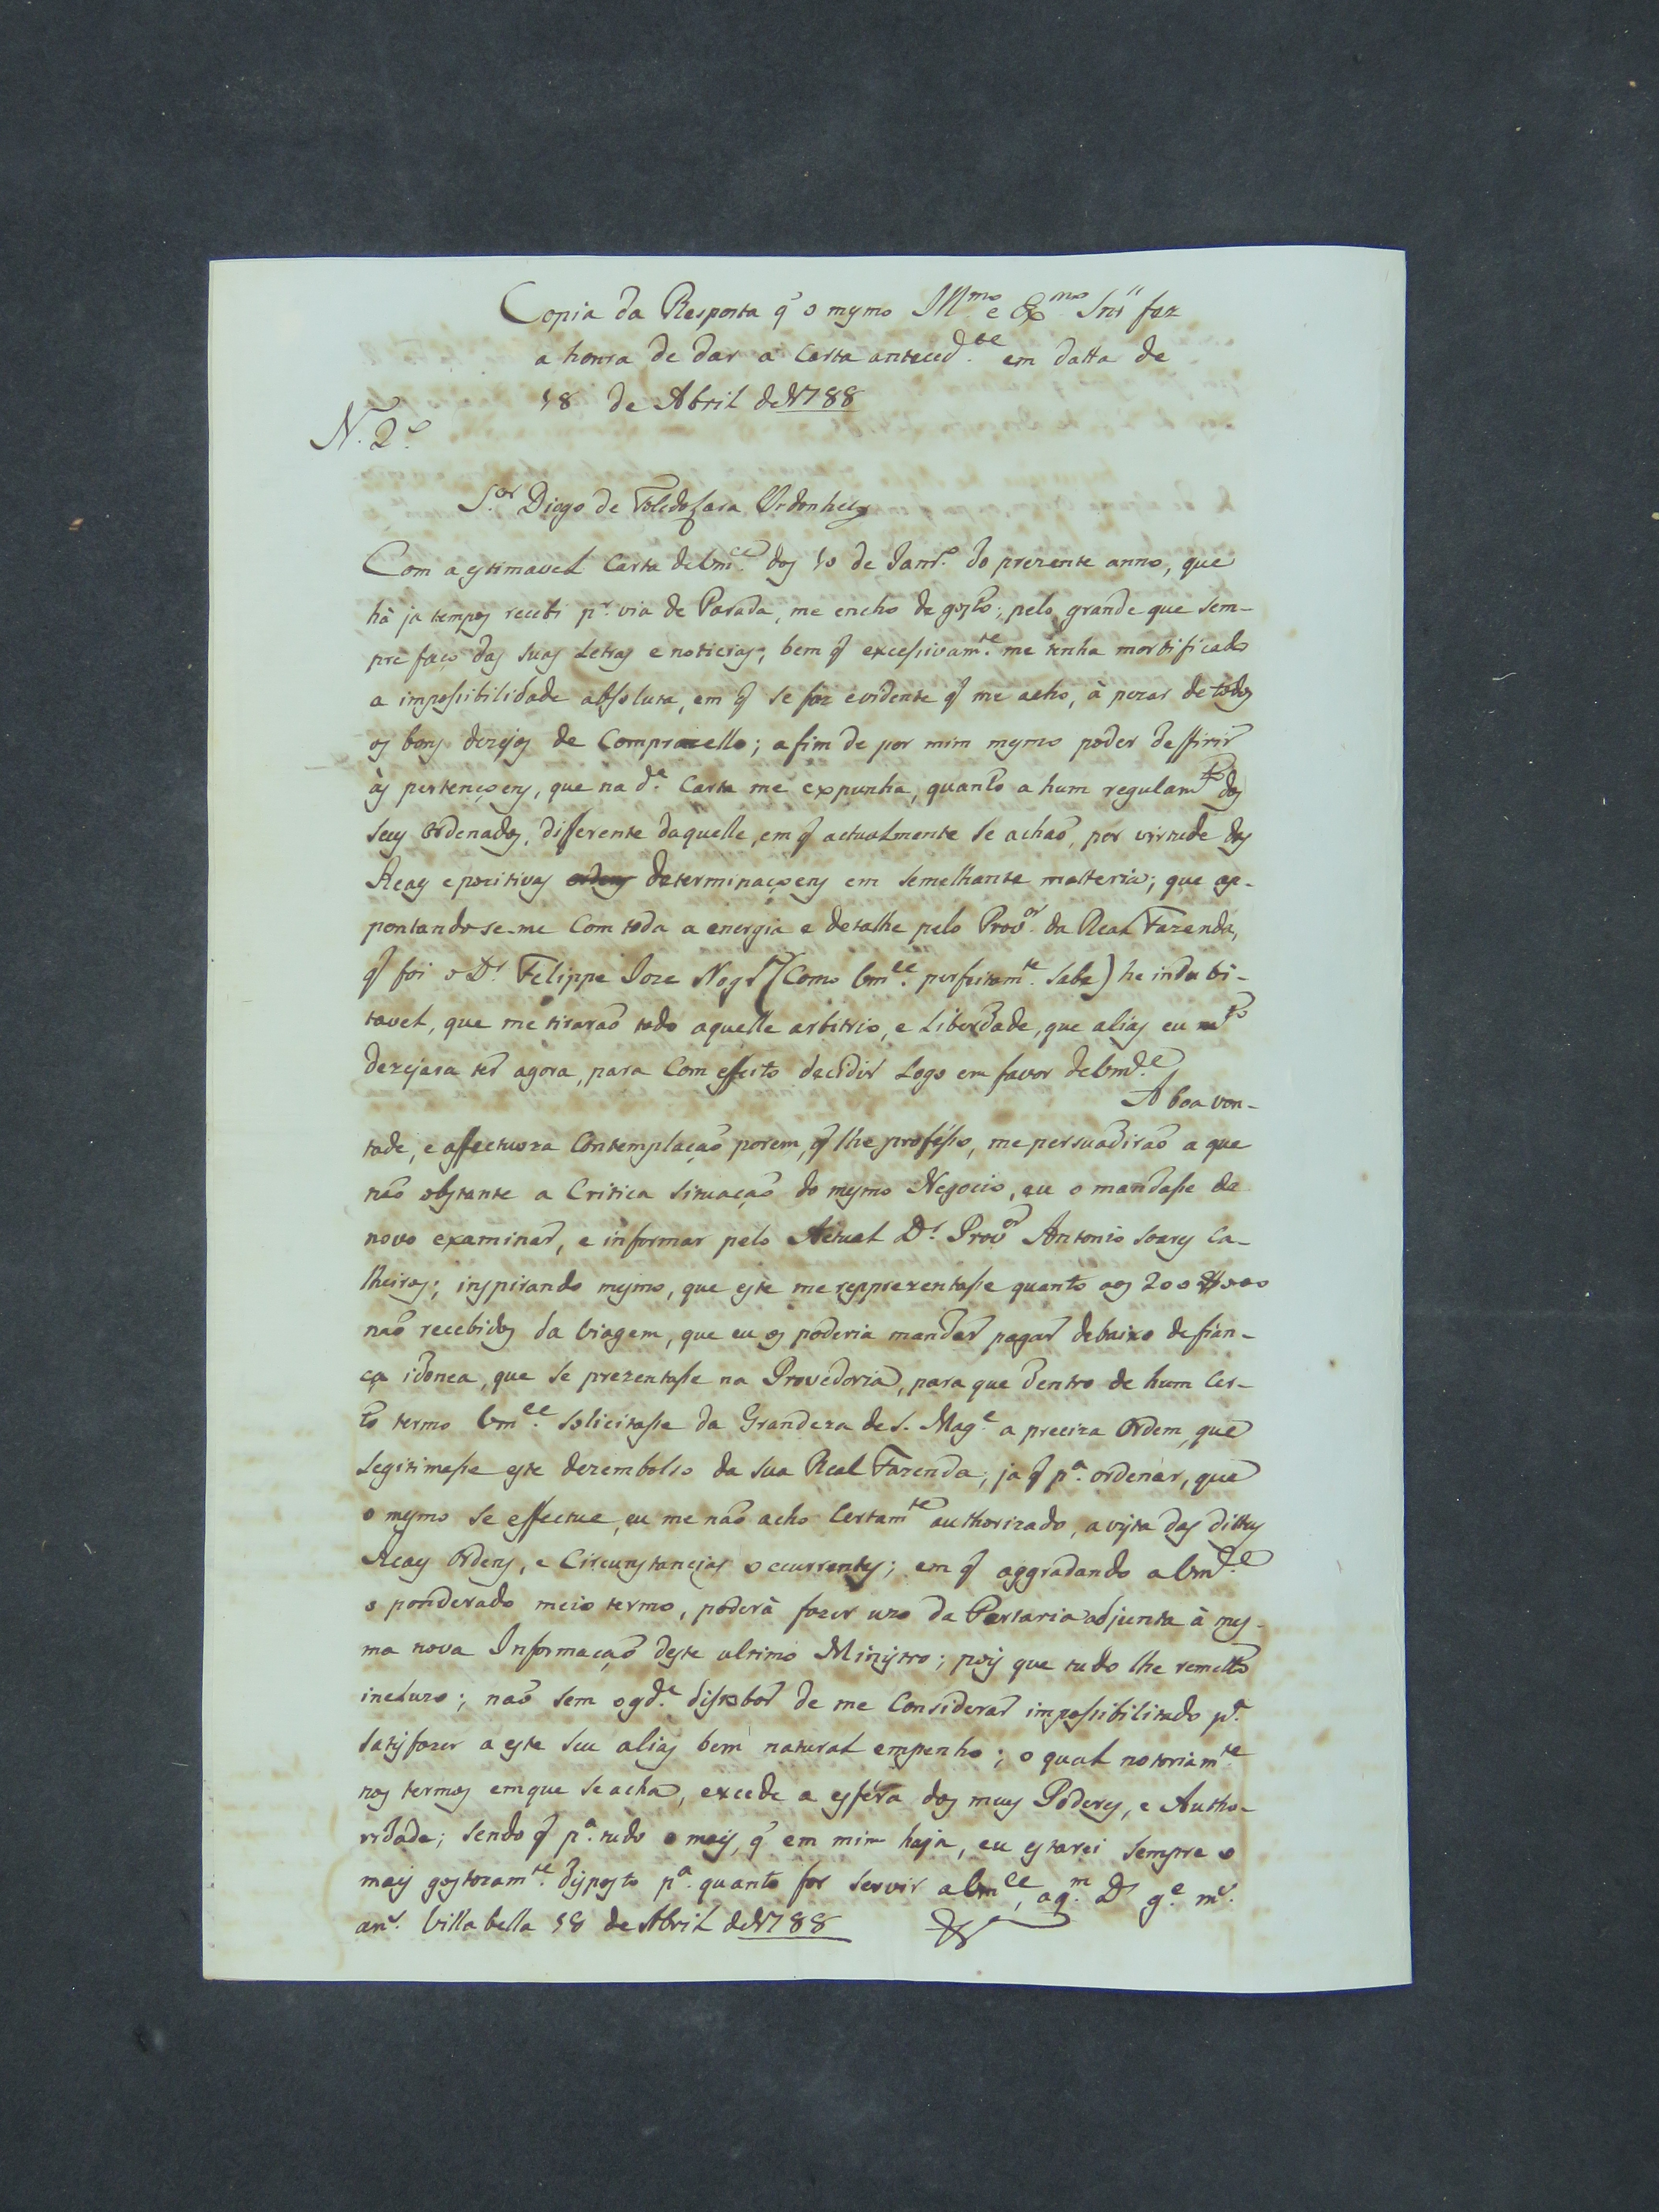 Copia da Resposta q̃ o mesmo Illmo e Exmo Snr faz
a honra de dar a Carta anteced.te em datta de
18 de Abril de 1788
N. 2.o
S.or Diogo de Toledo Lara Ordonhes
Com a estimavel Carta de Vm.ce dos 10 de Janr.o do prezente anno, que
há ja tempos recebi p.r via de Parada, me encho de gosto; pelo grande que sem-
pre faço das suas Letras e noticias; bem q̃ excessivam.te me tenha mortificado
a impossibilidade absoluta, em q̃ se faz evidente q̃ me acho, à pezar de todos
os bons dezejos de Comprazello; afim de por mim mesmo poder deffirir
ás pertençoens, que na d.a Carta me expunha, quanto a hum regulam.to dos
seus Ordenados, differente daquelle, em q̃ actualmente se achaõ, por virtude das
Reaes e pozitivas ordens determinaçoens em semelhante matteria; que ap-
pontandose-me Com toda a energia e detalhe pelo Prov.or da Real Fazenda,
q̃ foi o D.r Felippe Joze Nog.ra (Como Vm.ce perfeitam.te sabe) he indubi-
tavel, que me tiraraõ todo aquelle arbitrio, e Liberdade, que aliás eu m.to
dezejara ter agora, para Com effeito decidir Logo em favor de Vm.ce
A boa von-
tade, e affectuoza Contemplaçaõ porem, q̃ lhe professo, me persuadiraõ a que
naõ obstante a Critica situaçaõ do mesmo Negocio, eu o mandasse de
novo examinar, e informar pelo Actual D.r Prov.or Antonio Soares Ca-
lheiros; inspirando mesmo, que este me reprezentasse quanto aos 200$000
naõ recebidos da Viagem, que eu os poderia mandar pagar debaixo de fian-
ça idonea, que se prezentasse na Provedoria, para que dentro de hum Cer-
to termo Vm.ce solicitasse da Grandeza de S. Mag.e a preciza Ordem, que
Legitimasse este dezembolso da sua Real Fazenda, ja q̃ p.a ordenar, que
o mesmo se effectue, eu me naõ acho Certam.te authorizado, a vista das dittas
Reaes Ordens, e Circunstancias occurrentes; em q̃ aggradando a Vm.ce
o ponderado meio termo, poderá fazer uzo da Portaria adjunta à mes-
ma nova Informaçaõ deste ultimo Ministro; pois que tudo lhe remetto
incluzo; naõ sem o gd.e dissabor de me Considerar impossibilitado p.a
satisfazer a este seu alias bem natural empenho; o qual notoriam.te
nos termos em que se acha, excede a esféra dos meus Poderes, e Autho-
ridade; sendo q̃ p.a tudo o mais, q̃ em mim haja, eu estarei sempre o
mais gostozam.te disposto p.a quanto for servir a Vm.ce, a q.m D.s g.e m.s
an.s Villa bella 18 de Abril de 1788